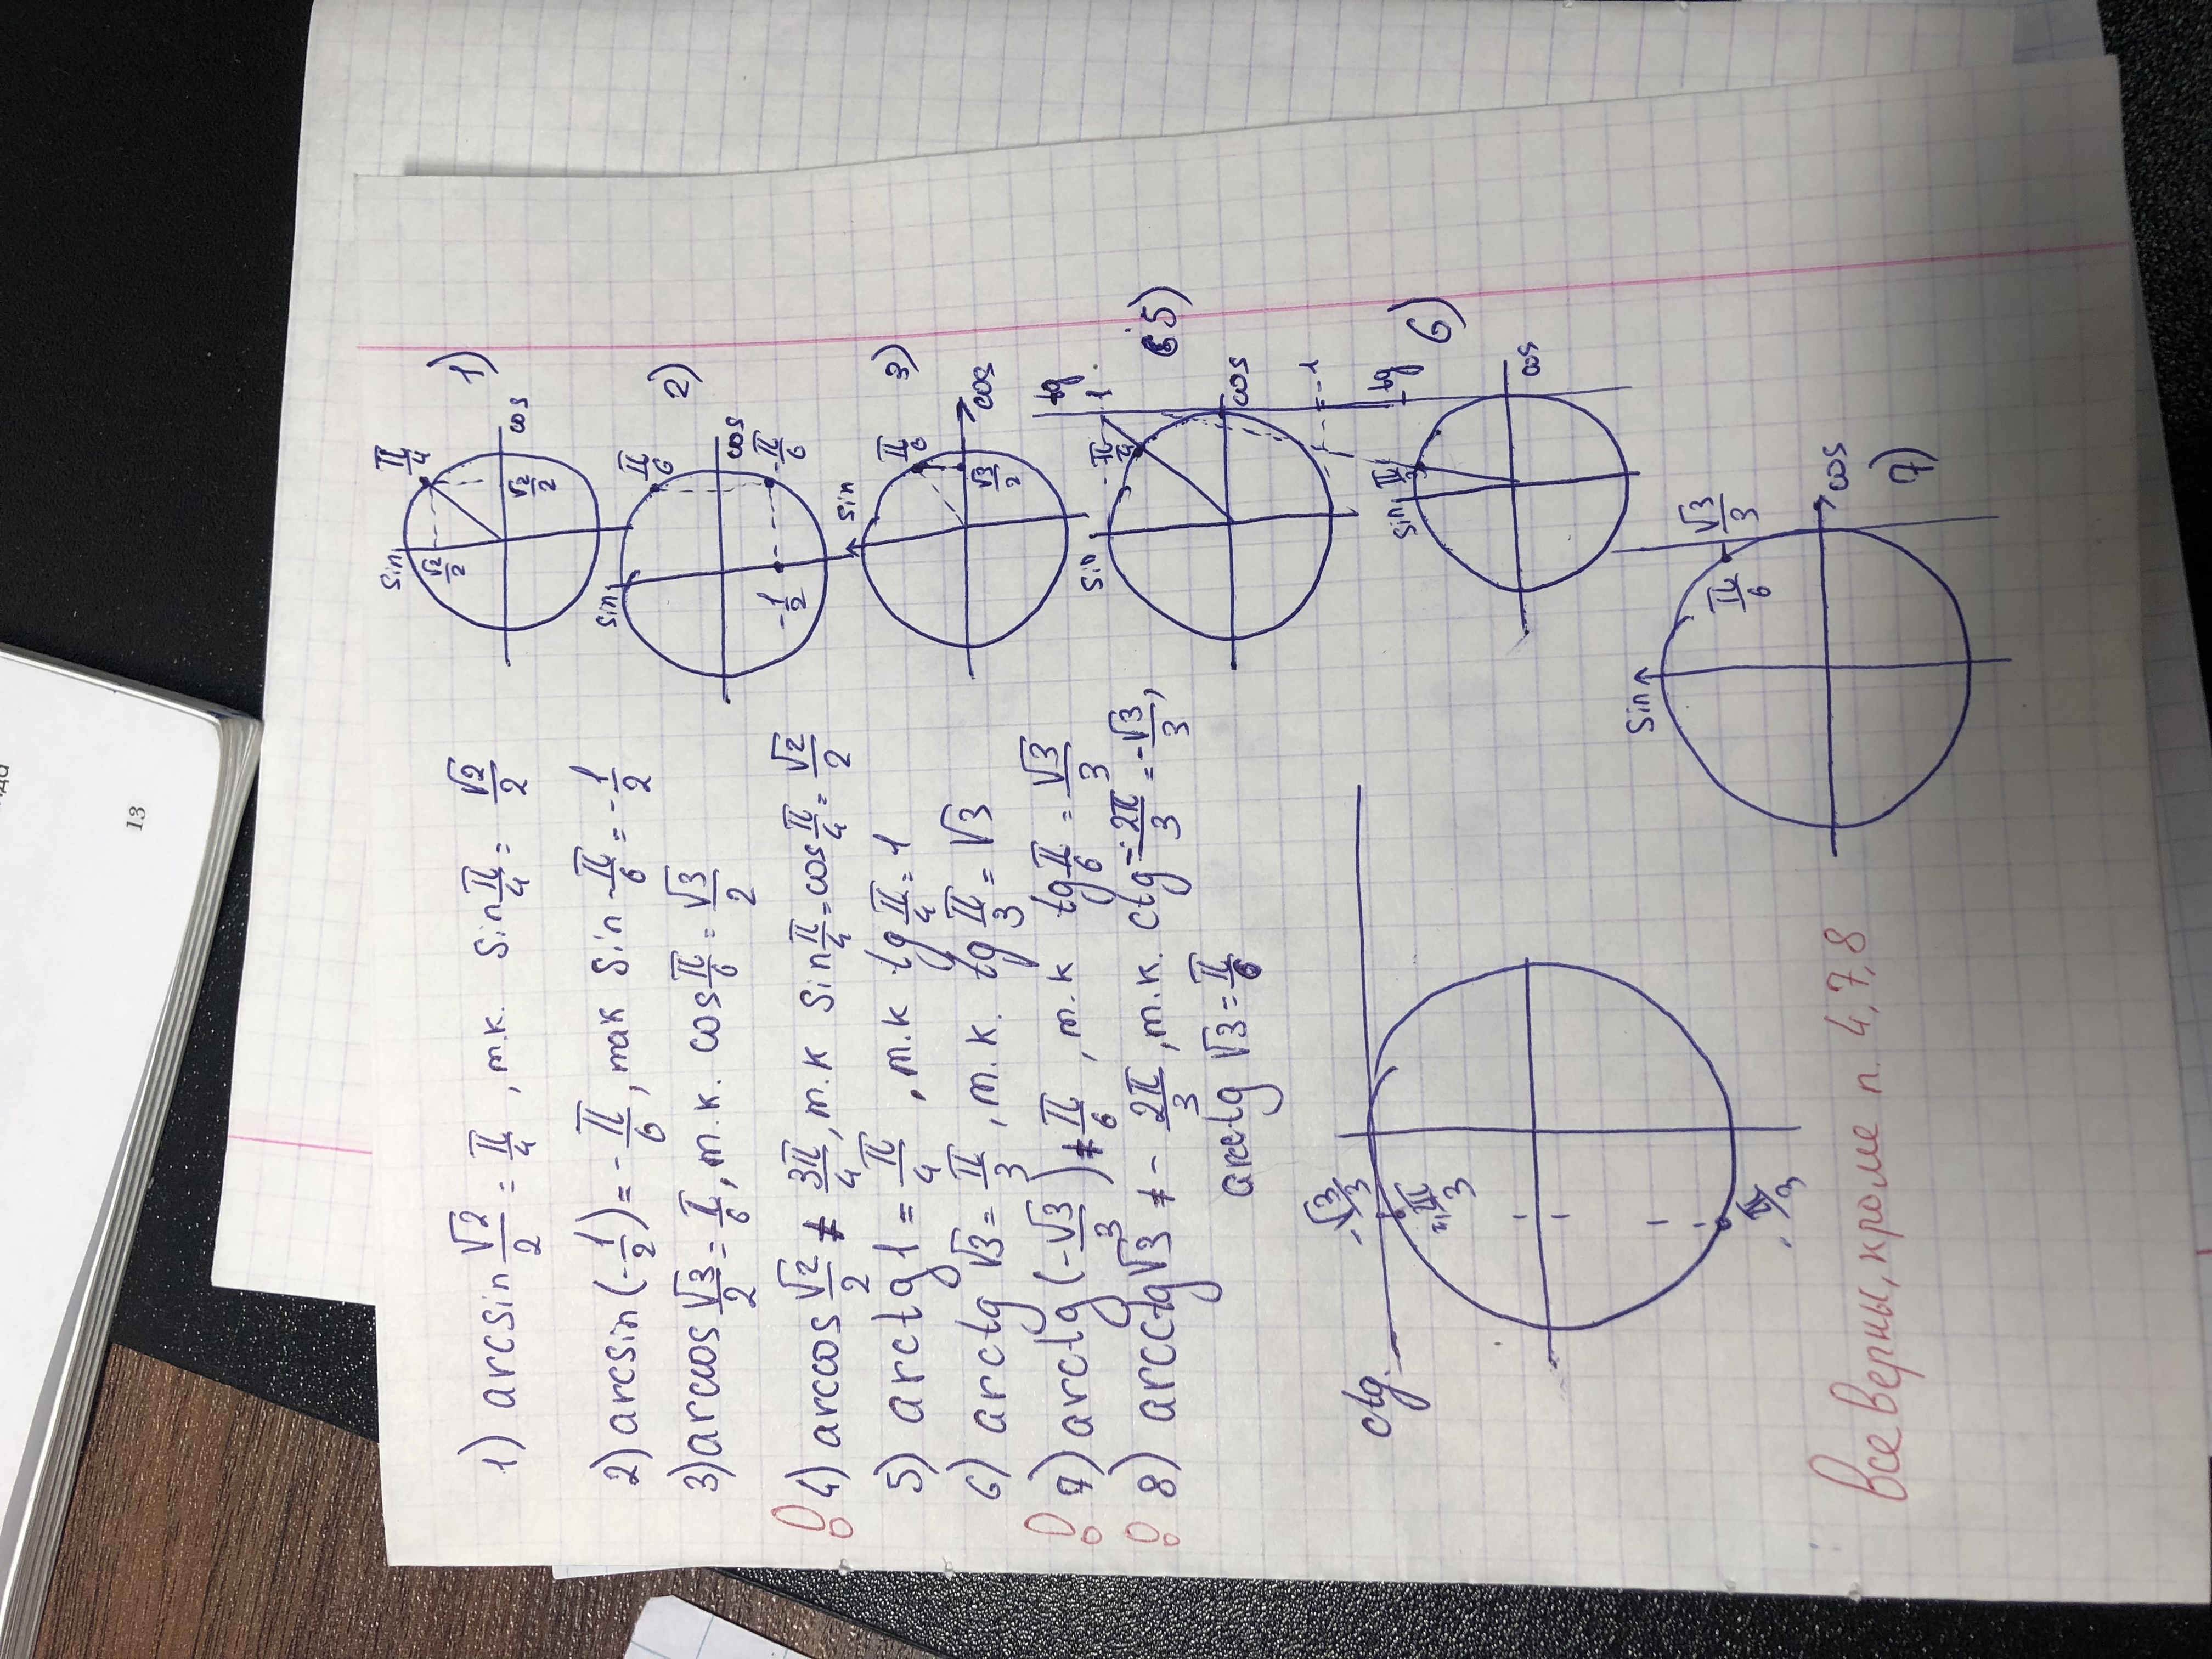 1) arcsin √2/2 = π/4, т.к. sin π/4 = √2/2
2) arcsin(-1/2) = -π/6, так sin -π/6 = -1/2
3) arcos √3/2 = π/6, т.к. cos π/6 = √3/2
4) arccos √2/2 ≠ 3π/4, т.к sin π/4 = cos π/4 = √2/2
5) arctg 1 = π/4, т.к tg π/4 = 1
6) arctg √3 = π/3, т.к. tg π/3 = √3
7) arctg (-√3/3) ≠ π/6, т.к tg π/6 = √3/3
8) arcctg √3 ≠ -2π/3, т.к. ctg -2π/3 = -√3/3,
arcctg √3 = π/6
ctg
-√3/3
π/3
Все верны, кроме п. 4, 7, 8
1)
sin
π/4
√2/2
√2/2
cos
2)
sin
π/6
cos
-π/6
-1/2
3)
sin
π/6
√3/2
cos
5)
sin
π/4
tg
1
cos
-1
6)
sin
π/3
tg
cos
7)
sin
π/6
√3/3
cos
13